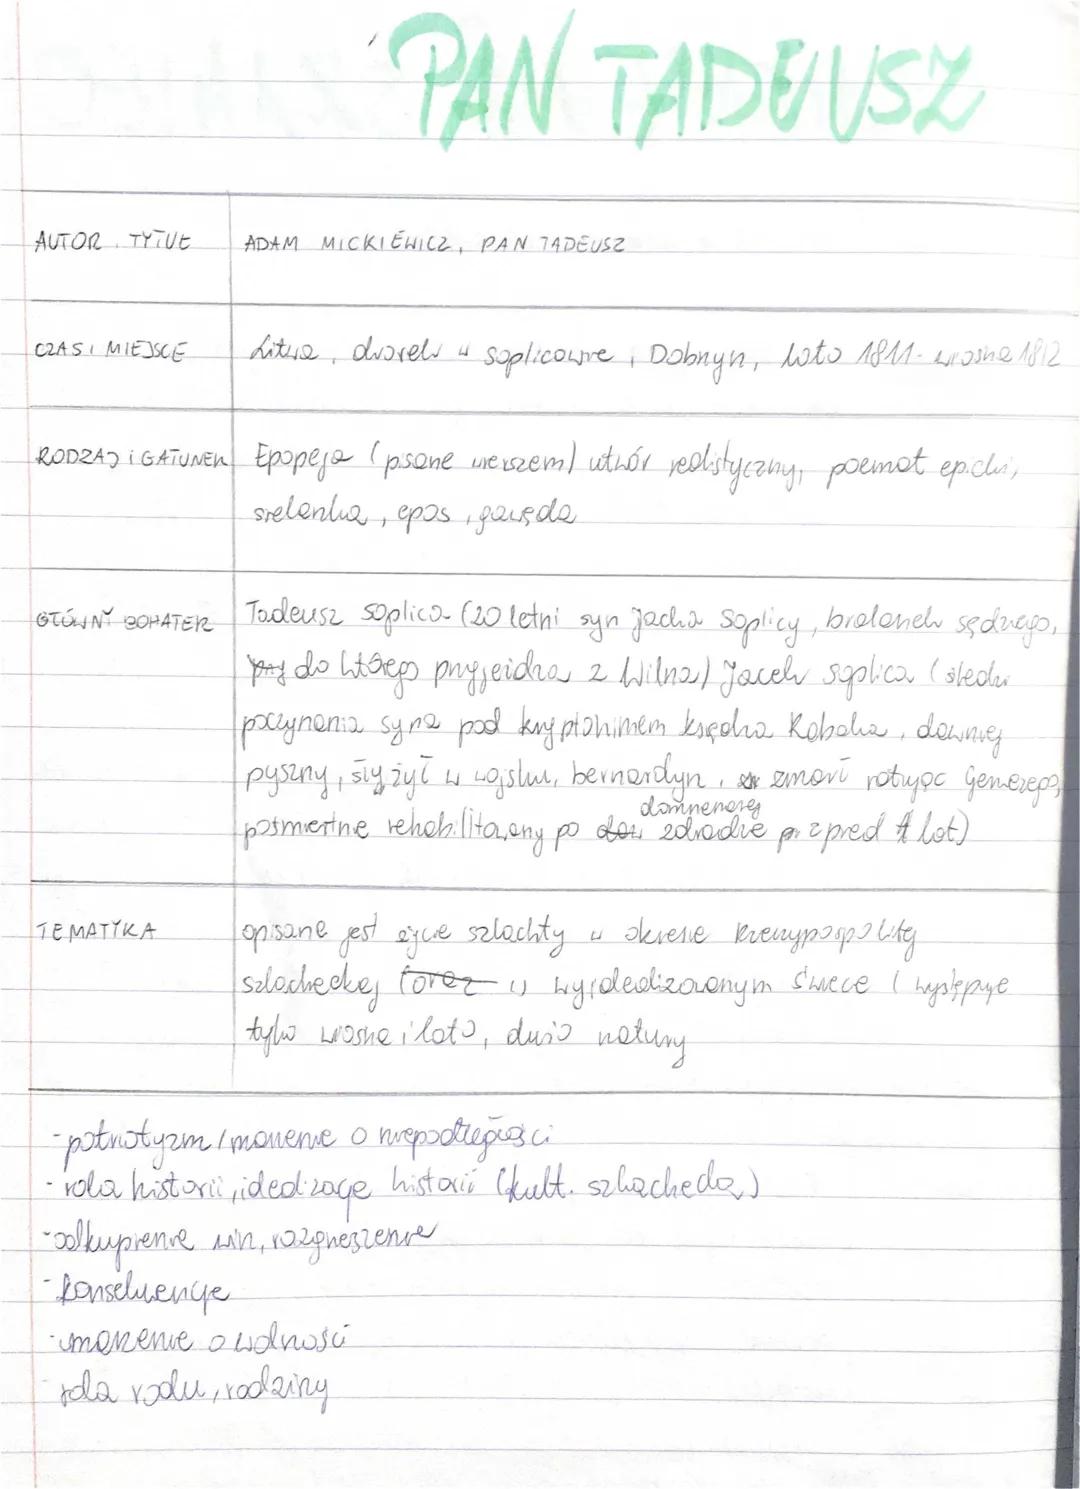 PAN TADEUSZ
AUTOR, TYTUŁ
ADAM MICKIEWICZ, PAN TADEUSZ
CZAS I MIEJSCE
Litwa, dworek w soplicowie, Dobrzyn, lato 1811- wiosna 1812
RODZAJ i GATUNEK
Epopeja (pisane wierszem) utwór realistyczny, poemat epicki,
sielanka, epos, gawęda
GŁÓWNY BOHATER
Tadeusz soplica (20 letni syn Jacka Soplicy, bratanek sędziego,
do którego przyjeżdża z Wilna) Jacek soplica (śledzi
poczynania syna pod kryptonimem księdza Robaka, dawniej
pyszny, służył w wojsku, bernardyn, zmarł ratując Gerwazego,
pośmiertnie rehabilitowany po domniemanej zdradzie sprzed lat)
TEMATYKA
opisane jest życie szlachty w okresie Rzeczypospolitej
szlacheckiej (oraz w wyidealizowanym świecie (występuje
tylko wiosna i lato, dużo natury
- patriotyzm / marzenie o niepodległości
- rola historii, idealizacje historii (kult. szlachecka)
- odkupienie win, rozgrzeszenie
- konsekwencje
- marzenie o wolności
- rola rodu, rodziny